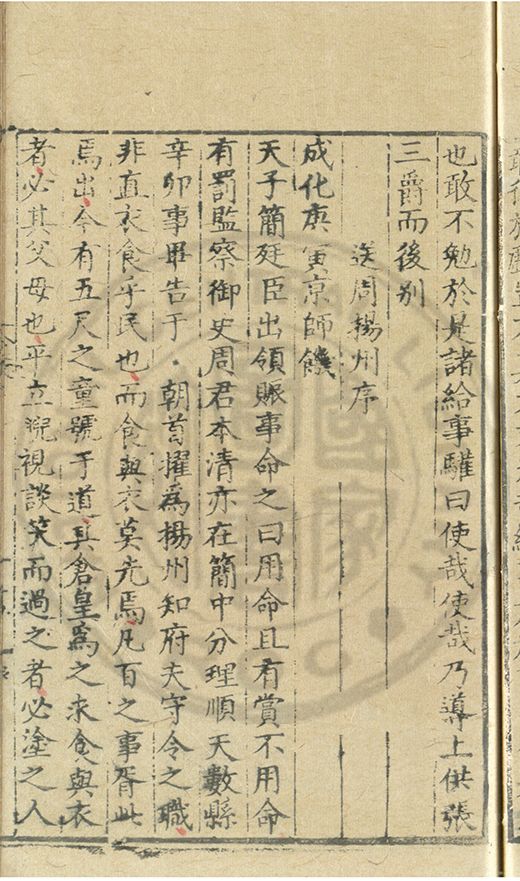 也敢不勉於是諸給事驩曰使哉使哉乃導上供張
三爵而後别
送周揚州序
成化庚寅京師饑
天子簡廷臣出領賑事命之曰用命且有賞不用命
有罰監察御史周君本清亦在簡中分理順天數縣
辛卯事畢告于朝首擢爲揚州知府夫守令之職
非直衣食乎民也而食與衣莫先焉凡百之事胥此
焉出今有五尺之童號于道其倉皇爲之求食與衣
者必其父母也平立睨視談笑而過之者必塗之人